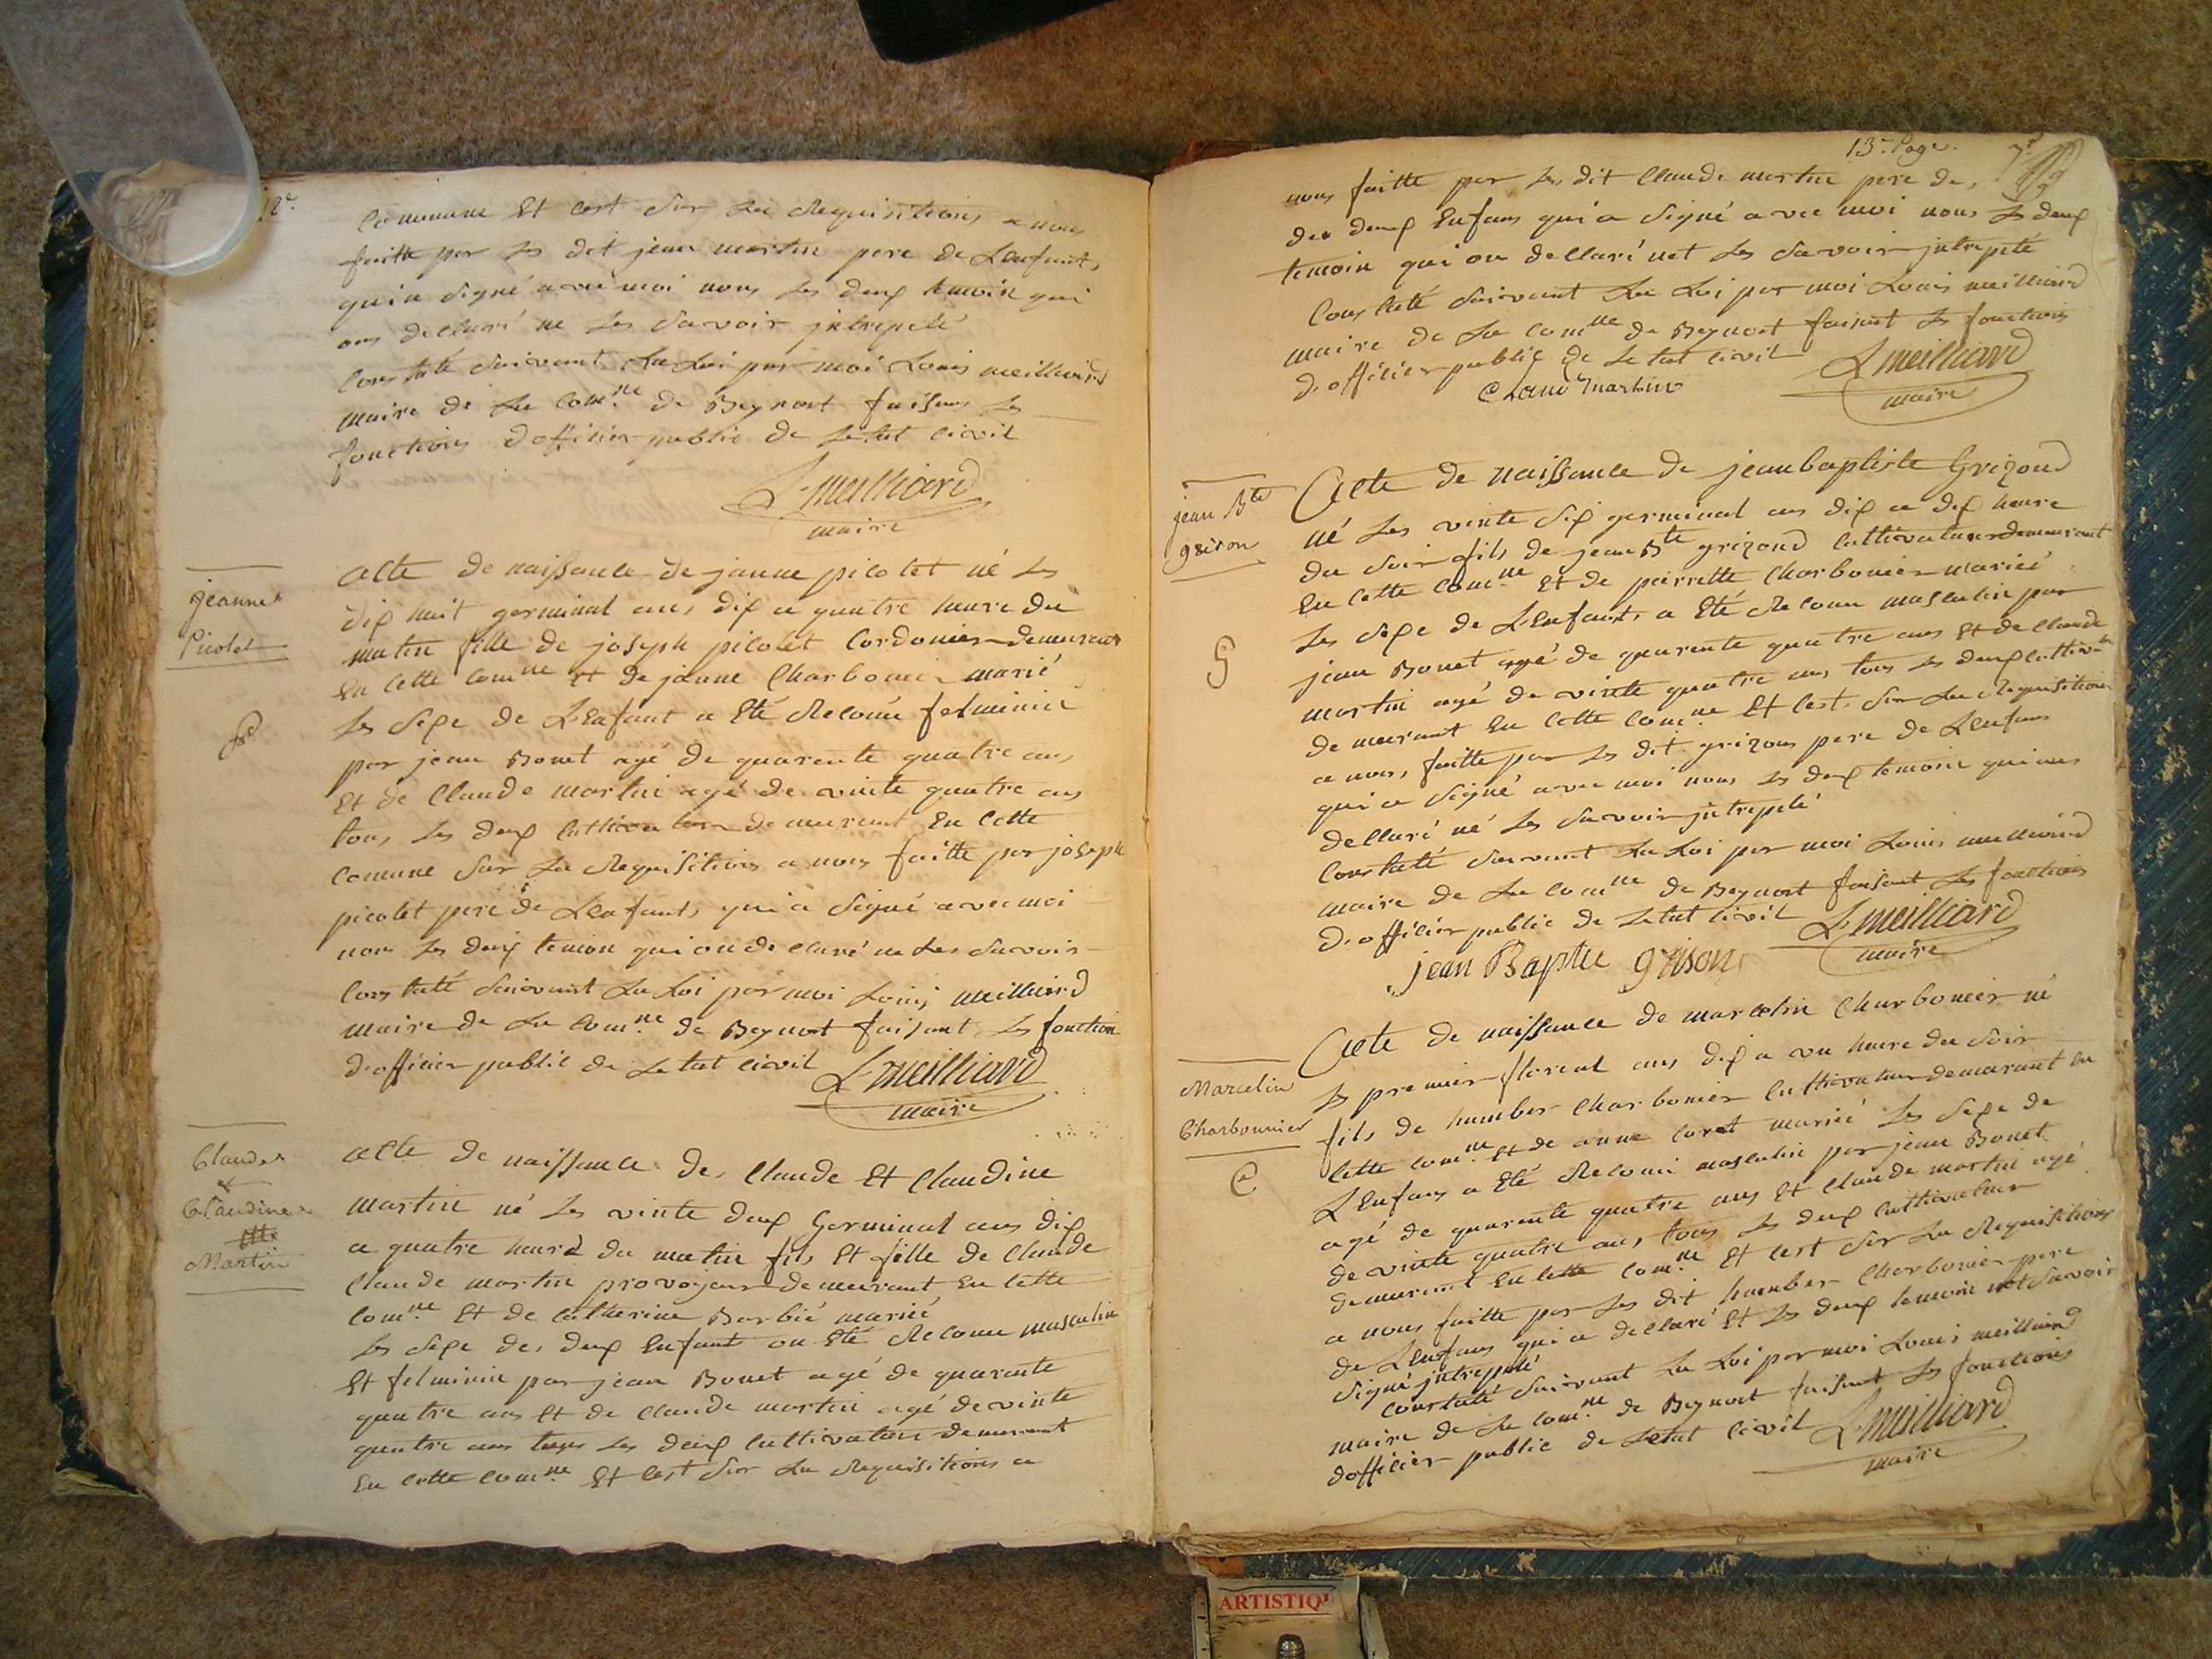 12e
Commune Et cest Sur La Requisitions a nous
faitte par Le dit jean martin pere de Lenfant,
qui a Signé avec moi nons Les deux temoin qui
ons declaré ne Les Savoir jntrepelé
Constaté Suivant La Loi par moi Louis meilliard
maire de La Comne de Beynost faisans Les
fonctions dofficier public de Letat Civil
L. meilliard
maire
jeanne
Picolet
Acte de naissance de janne picolet né Les
dix nuit germinal ans dix a quatre heure du
matin fille de joseph picolet Cordonier demeurant
En Cette Comne Et de janne Charbonier marié
Les Sexe de LEnfant a Eté Reconu felminin
par jean Bonet agé de quarente quatre ans,
Et de Claude martin agé de vinte quatre ans
tous Les deux Cultivateur demeurant En Cette
Comune Sur La Requisitions a nous faitte par joseph
picolet pere de Lenfant, qui a Signé avec moi
nons Les deux temion qui on declaré ne Les Savoir
Constaté Suivant La Loi par moi Louis meilliard
maire de La Comne de Beynost faisant Les fonction
d'officier public de Letat Civil
L. meilliard
maire
Claude
&
Claudine
Martin
Acte de naissance de, Claude Et Claudine
martin né Les vinte deux Germinal ans dix
a quatre heure du matin fils Et fille de Claude
Claude martin provoyeur demeurant En Cette
Comne Et de Catherine Barbié marié
Les Sexe des deux Enfant on Eté Reconu masculin
Et felminin par jean Bonet agé de quarante
quatre ans Et de Claude martin agé de vinte
quatre ans tous Les deux Cultivateur demeurant
En Cette Comne Et Cest Sur La Requisitions a
13e Page.
nous faitte par Les dit Claude martin pere de,
des deux Enfans qui a Signé avec moi nons Les deux
temoin qui on declaré net Les Savoir jntrepelé
Constaté Suivant La Loi par moi Louis meilliard
maire de La Comne de Beynost faisant Les fonctions
d'officier public de Letat Civil
L. meilliard
maire
Claud martin
jean Bte
grison
Acte de naissance de jean baptiste Grizond
né Les vinte Six germinal ans dix a dix heure
du Soir fils de jean Bte grizond Cultivateur demeurant
En Cette Comne Et de pierrette Charbonier marieé
Les Sexe de LEnfant, a Eté Reconu masculin par
jean Bonet agé de quarente quatre ans Et de Claude
martin agé de vinte quatre ans tous Les deux Cultivatr
demeurant En Cette Comne Et Cest, Sur La Requisitions
a nous, faitte par Les dit grizons pere de Lenfans
qui a Signé avec moi nons Les deux temoin qui ons
declaré né Les Savoir jntrepelé
Constaté Suivant La Loi par moi Louis meilliard
maire de La Comne de Beynost faisant Les fonctions
D'officier public de Letat Civil
L. meilliard
maire
jean Baptte grison
Marcelin
Charbonnier
C
Acte de naissance de marcelin Charbonier né
Les premier floreal ans dix a vn heure du Soir
fils de humber Charbonier Cultivateur demeurant En
Cette Comne Et de anne Coret marieé Les Sexe de
LEnfans a Eté Reconu masculin par jean Bonet
agé de quarente quatre ans Et Claude martin agé
de vinte quatre ans, tous Les deux Cultivateur
demeurant En Cette Comne Et Cest Sur La Requisitions
a nous faitte par Les dit humber Charbonier pere
de LEnfans qui a declaré Et Les deux temoin net Savoir
Signé jntrepelé
Constaté Suivant La Loi par moi Louis meilliard
maire de La Comne de Beynost faisant Les fonctions
dofficier public de Letat Civil
L. meilliard
maire
ARTISTIQ